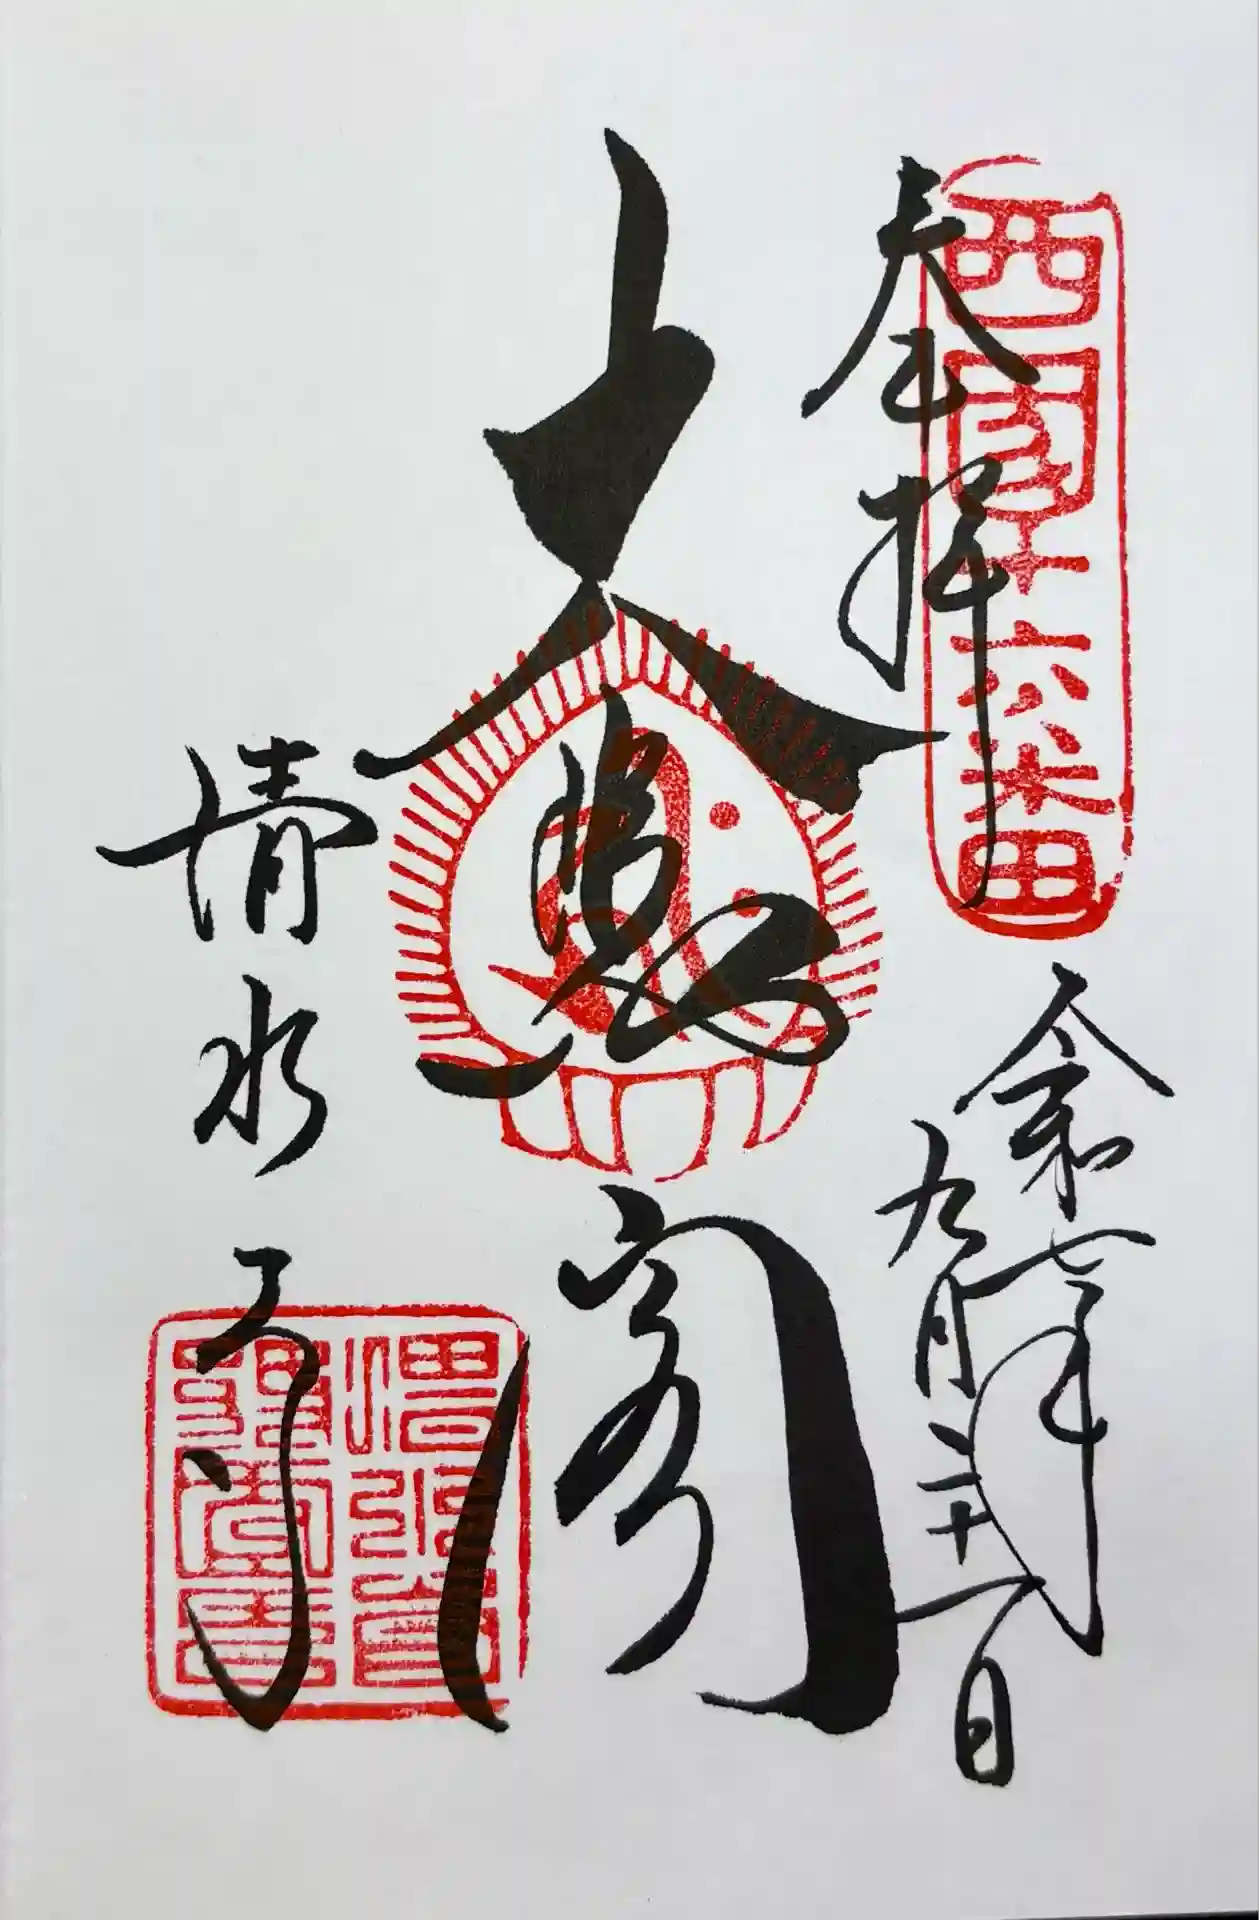 西国十六番
奉拝
令和七年
九月二十一日
大悲閣
清水寺